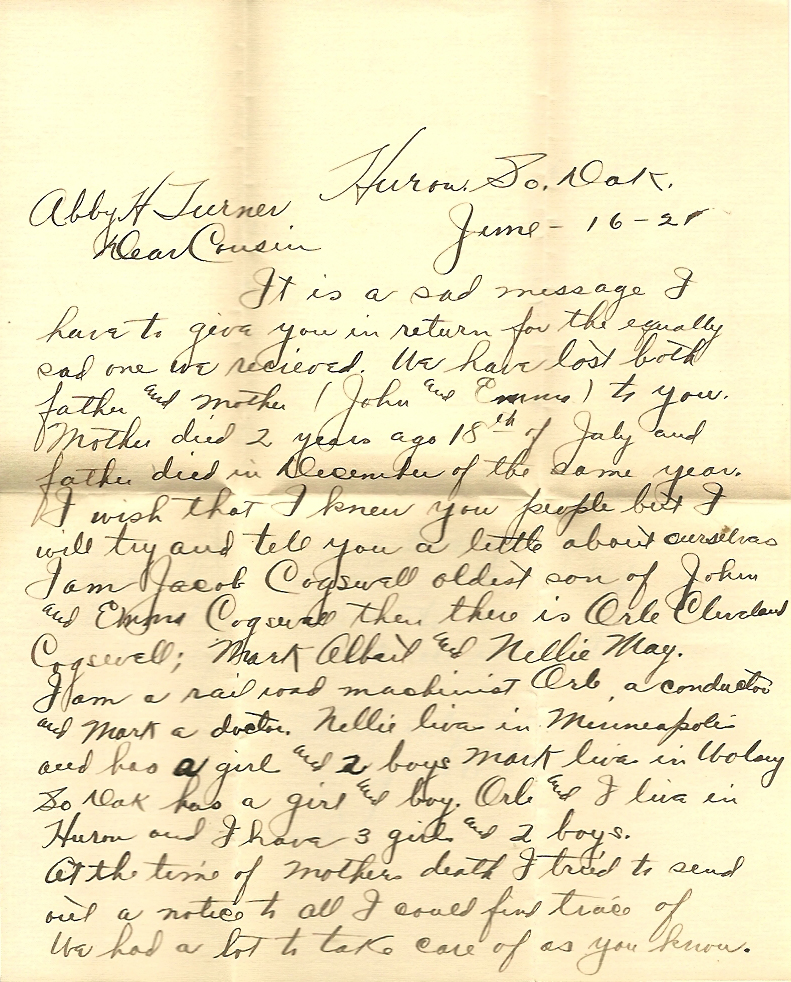 Huron. So. Dak.
Abby H Turner
June - 16 - 21
Dear Cousin
It is a sad message I
have to give you in return for the equally
sad one we recieved. We have lost both
father and mother (John and Emma) to you.
Mother died 2 years ago 18th of July and
father died in December of the same year.
I wish that I knew you people but I
will try and tell you a little about ourselves
I am Jacob Cogswell oldest son of John
and Emma Cogswell then there is Orle Cleveland
Cogswell; Mark Albert and Nellie May.
I am a rail road machinist Orle, a conductor
and Mark a doctor. Nellie live in Minneapolis
and has a girl and 2 boys Mark live in Wolsey
So Dak has a girl and boy. Orle and I live in
Huron and I have 3 girls and 2 boys.
At the time of Mothers death I tried to send
out a notice to all I could find trace of
We had a lot to take care of as you know.